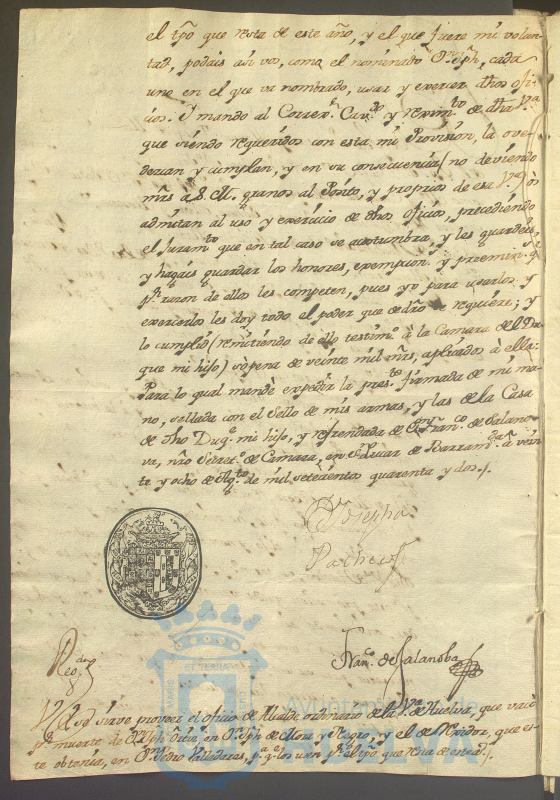 el tpõ que resta de este año, y el que fuere mi volun-
tad, podais así vos, como el nominado Dn. Jph, cada
uno en el que va nombrado, usar y exercer dhos ofi-
cios. Y mando al Correxr. Cavdo. y reximto. de dha Va.
que siendo requeridos con esta mi Provision, la ove-
dezcan y cumplan, y en su consecuencia (no deviendo
mrs à S. M. granos al Posito, y propios de esa Va.) òs
admitan al uso y exercicio de dhos oficios, precediendo
el Juramto. que en tal caso se acostumbra, y les guardeis,
y hagais guardar los honores, exempcions. y preeminas. q.
pr. razon de ellos les competen, pues yo para usarlos y
exercerlos les doy todo el poder que de dro. se requiere; y
lo cumplid (remitiendo de ello testimo. à la Camara de el Du-
que mi hijo) sopena de veinte mil mrs, aplicados à ella:
Para lo qual mandè expedir la preste. firmada de mi ma-
no, sellada con el Sello de mis armas, y las de la Casa
de dho Duqe. mi hijo, y refrendada de Dn. Franco. de Salano-
va, nro Secreto. de Camara, en Sn. Lucar de Barrama. à vein-
te y ocho de Agto. de mil setecientos quarenta y dos./.
Josepha
Pacheco
Franco. de Salanoba
Regdo.
V. E. se sirve proveer el oficio de Alcalde ordinario de la Va. de Huelva, que vacò
pr. muerte de Dn. Jph Ortiz, en Dn. Jph de Mora y Negro, y el de Rexidor, que es-
te obtenia, en Dn. Pedro Valladares, pa. q. los usen pr. el tpo. que resta de este añ./.